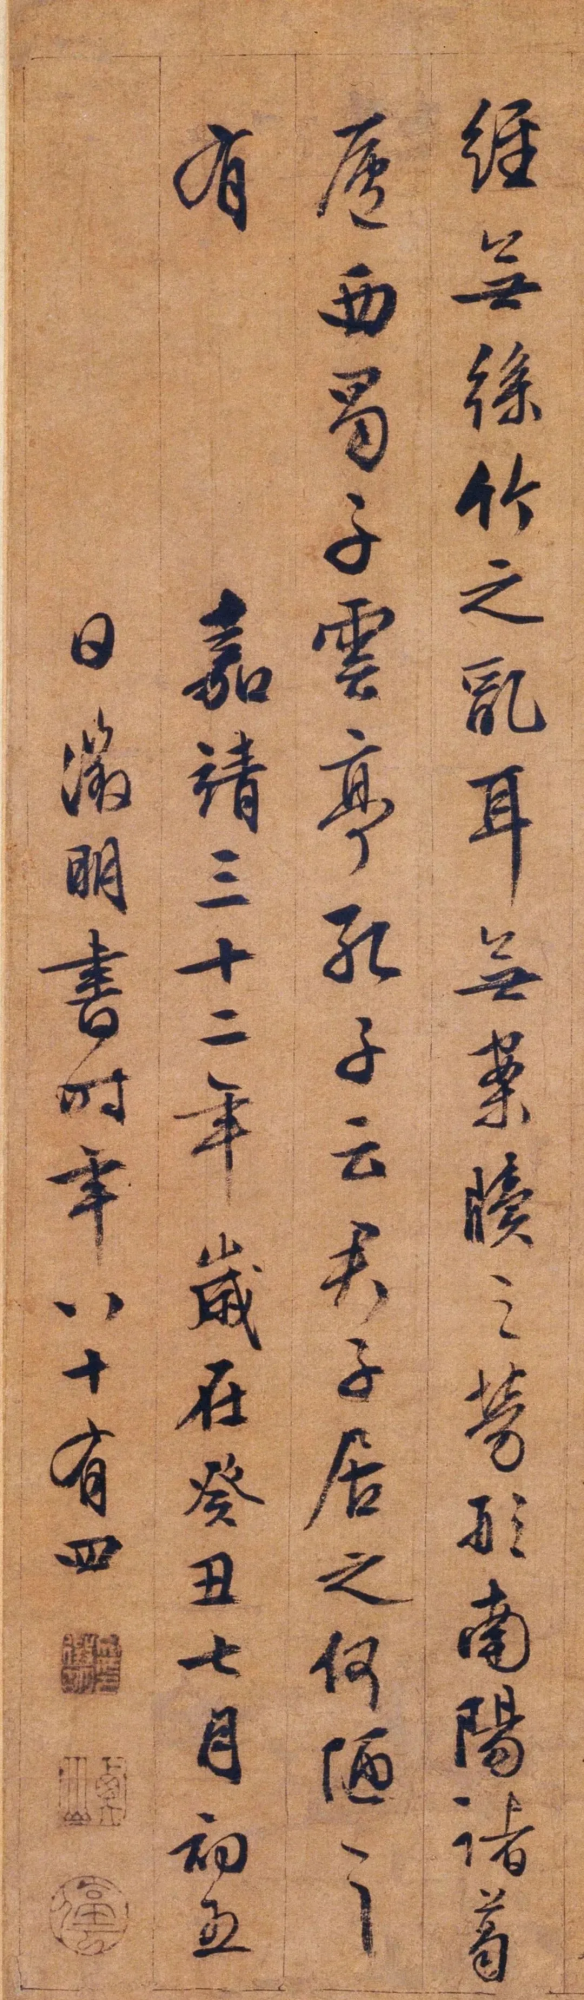 經無絲竹之亂耳無案牘之勞形南陽諸葛
廬西蜀子雲亭孔子云君子居之何陋之
有
嘉靖三十二年歲在癸丑七月初五
日徵明書時年八十有四